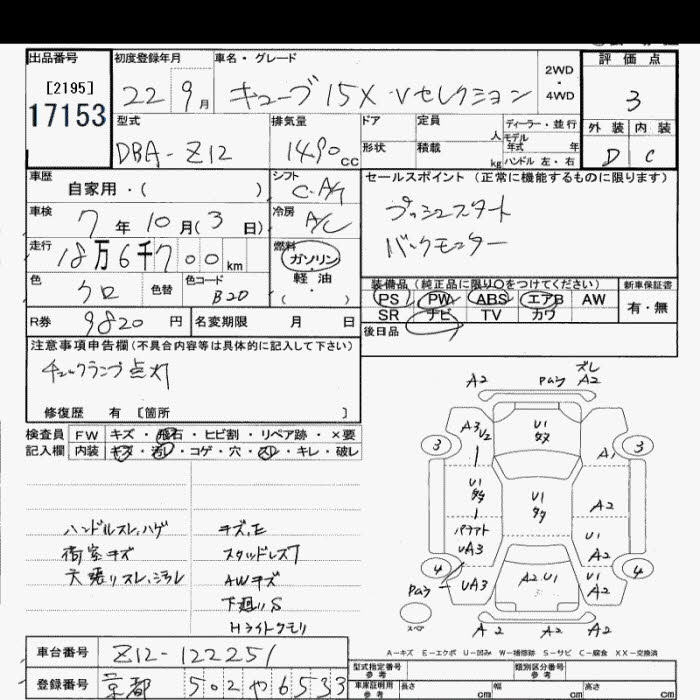 出品番号 初度登録年月 車名・グレード 2WD・4WD 評価点
[2195] 17153
22 9月 キューブ 15X・Vセレクション 3
型式 排気量 ドア 定員 人 ディーラー・並行 外装 内装
DBA-Z12 1490cc 形状 積載 kg モデル年式 年 ハンドル 左・右 D C
車歴 自家用・( ) シフト C.A/T セールスポイント (正常に機能するものに限ります)
車検 7年10月(3日) 冷房 A/C プッシュスタート
走行 18万6千700km 燃料 ガソリン・軽油・( ) バックモニター
色 クロ 色替 色コード B20 装備品 (純正品に限り○をつけてください) 新車保証書
PS PW ABS エアB AW 有・無
SR ナビ TV カワ
R券 9820円 名変期限 月 日 後日品
注意事項申告欄(不具合内容等は具体的に記入して下さい)
チェックランプ点灯
修復歴 有 [箇所 ]
検査員記入欄 FW キズ・飛石・ヒビ割・リペア跡・×要
内装 キズ・汚レ・コゲ・穴・スレ・キレ・破レ
ハンドルスレ、ハゲ キズ、E
荷室キズ スタッドレス7
天張リスレ、シミレ AWキズ
下廻りS
Hライトクモリ
A2 Pムラ ズレ A2
A3 1/2 U1 タタ A1
3 3
U1 タタ U1 タタ A2
パテアト UA3 U1 A2
4 4
Pムラ UA3 A2 U1 U1 A2
スペア A2 A2 A2
A-キズ E-エクボ U-凹み W-補修跡 S-サビ C-腐食 XX-交換済
車台番号 Z12-122251 型式指定番号 参考 類別区分番号 参考
登録番号 京都 502 や 6533 車庫証明用 参考 長さ cm 幅 cm 高さ cm